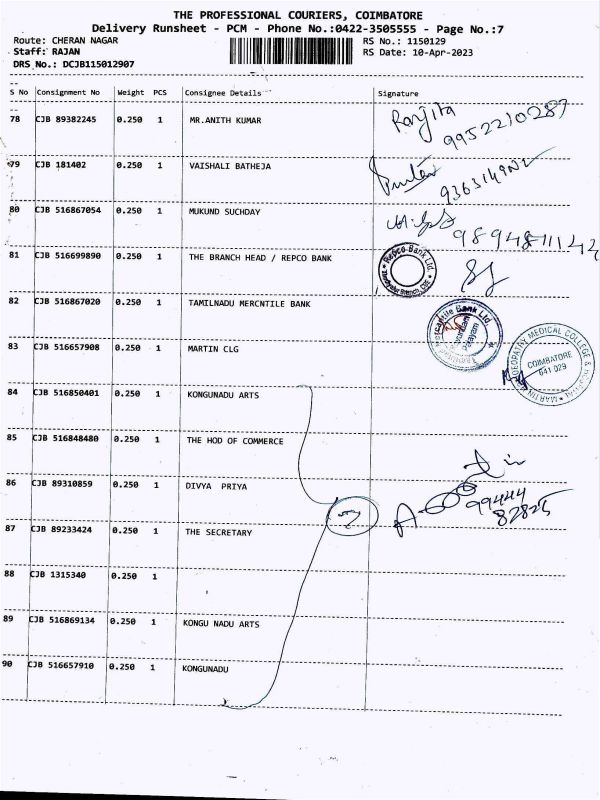 THE PROFESSIONAL COURIERS, COIMBATORE
Delivery Runsheet - PCM - Phone No.:0422-3505555 - Page No.:7
Route: CHERAN NAGAR RS No.: 1150129
Staff: RAJAN RS Date: 10-Apr-2023
DRS No.: DCJB115012907
S No Consignment No Weight PCS Consignee Details Signature
78 CJB 89382245 0.250 1 MR.ANITH KUMAR Ranjita
9952210287
79 CJB 181402 0.250 1 VAISHALI BATHEJA
80 CJB 516867054 0.250 1 MUKUND SUCHDAY
81 CJB 516699890 0.250 1 THE BRANCH HEAD / REPCO BANK Repco Bank Ltd.
82 CJB 516867020 0.250 1 TAMILNADU MERCNTILE BANK
83 CJB 516657908 0.250 1 MARTIN CLG COIMBATORE
641 029
84 CJB 516850401 0.250 1 KONGUNADU ARTS
85 CJB 516848480 0.250 1 THE HOD OF COMMERCE
86 CJB 89310859 0.250 1 DIVYA PRIYA 99444
82825
87 CJB 89233424 0.250 1 THE SECRETARY
88 CJB 1315340 0.250 1
89 CJB 516869134 0.250 1 KONGU NADU ARTS
90 CJB 516657910 0.250 1 KONGUNADU